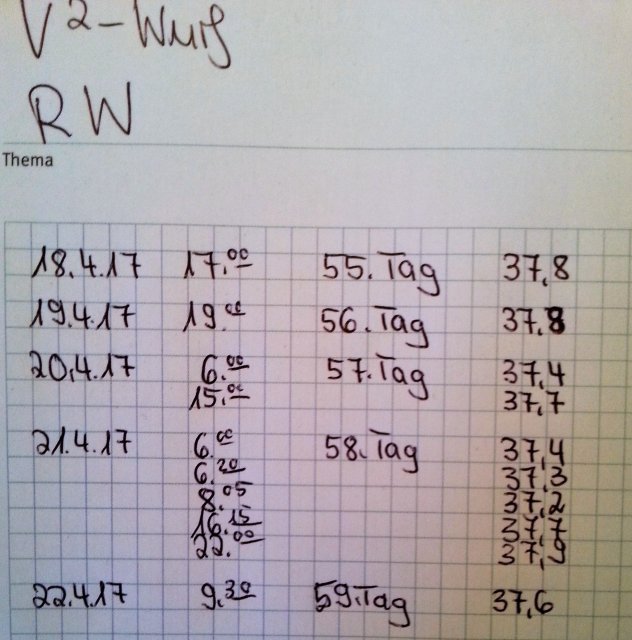 V²-Wurf
RW
Thema
18.4.17 17.00 55. Tag 37,8
19.4.17 19.00 56. Tag 37,8
20.4.17 6.00 57. Tag 37,4
15.00 37,7
21.4.17 6.00 58. Tag 37,4
6.20 37,3
8.05 37,2
16.15 37,7
22.00 37,9
22.4.17 9.30 59. Tag 37,6